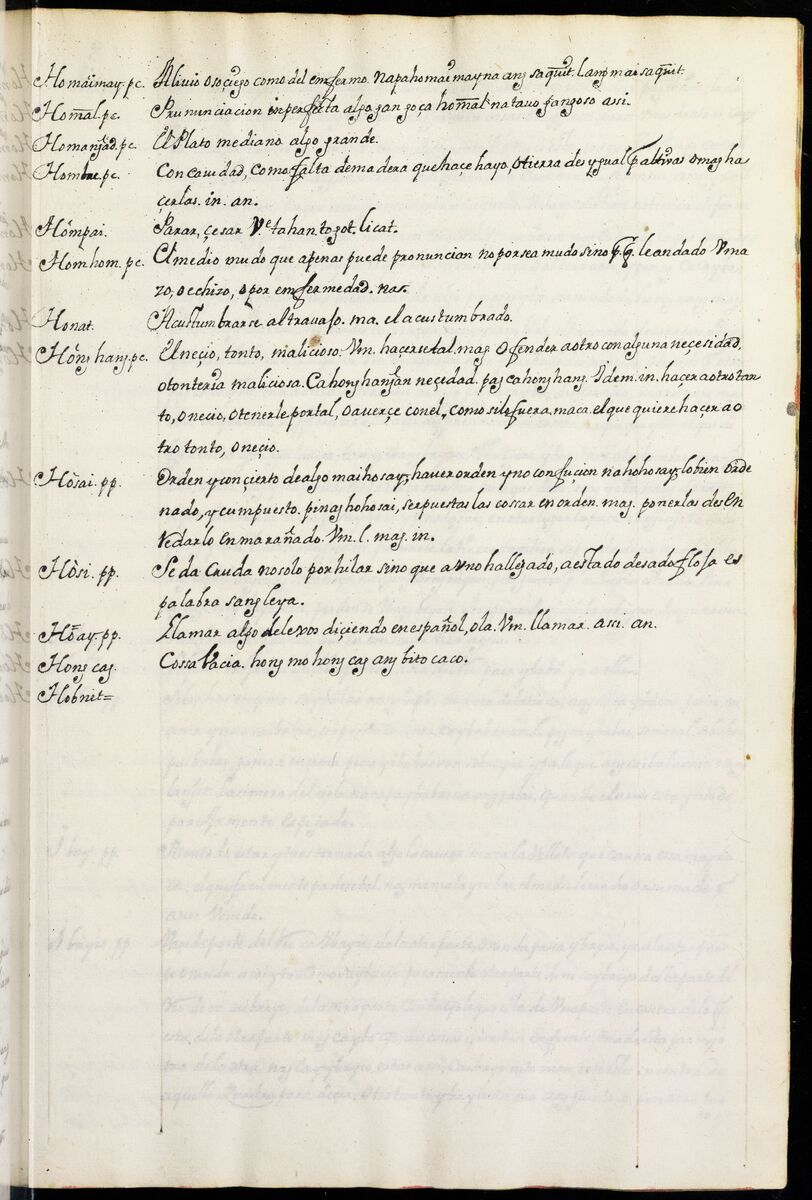 Homaimay. pc. Alivio o soçiego como del emfermo. Napahomaimay na ang saquit. l. ang mai saquit.
Homal. pc. Prununciacion inperfecta algo gangoça homal na tauo gangoso assi.
Homangad. pc. El Plato mediano algo grande.
Hom pc. Concauidad, como falta de madera que hace hoyo, o tierra desygual
çerlas. in. an.
Hòmpai. Parar, çesar Ve tahan. togot. licat.
Homhom. pc. El medio mudo que apenas puede pronunciar no por sea mudo sino pq le an dado
zo, o echizo, o por emfermedad. nas.
Honat. Acustumbrarse al trauajo. ma. el acustumbrado.
Hòng hang. pc. El neçio, tonto, malicioso. Vm. hacerse tal. mag. Ofender a otro con alguna neçesidad,
o tonteria maliciosa. Cahonghangan neçedad. pag cahonghang. Idem. in. haçer a otro tan
to, o necio, o tenerle por tal, o auerçe con el, como si lo fuera. maca. el que quiere haçer a o
tro tonto, o neçio.
Hòsai. pp. Orden y conçierto de algo mai hosay, hauer orden y no confuçion nahohosay, lo bien orde
nado, y cumpuesto. pinaghohosai, ser puestas las cossas en orden. mag. ponerlas des en
redarlo enmarañado. Vm. l. mag. in.
Hòsi. pp. Se da cruda no solo por hilar sino que a vno hallegado, a estado de sado floja es
palabra sangleya.
Hoay. pp. Llamar algo de levos diçiendo en español, ola. Vm. llamar. assi. an.
Hong cag Cossa Vacia. hong mo hong cag ang bito caco.
Hobnit=